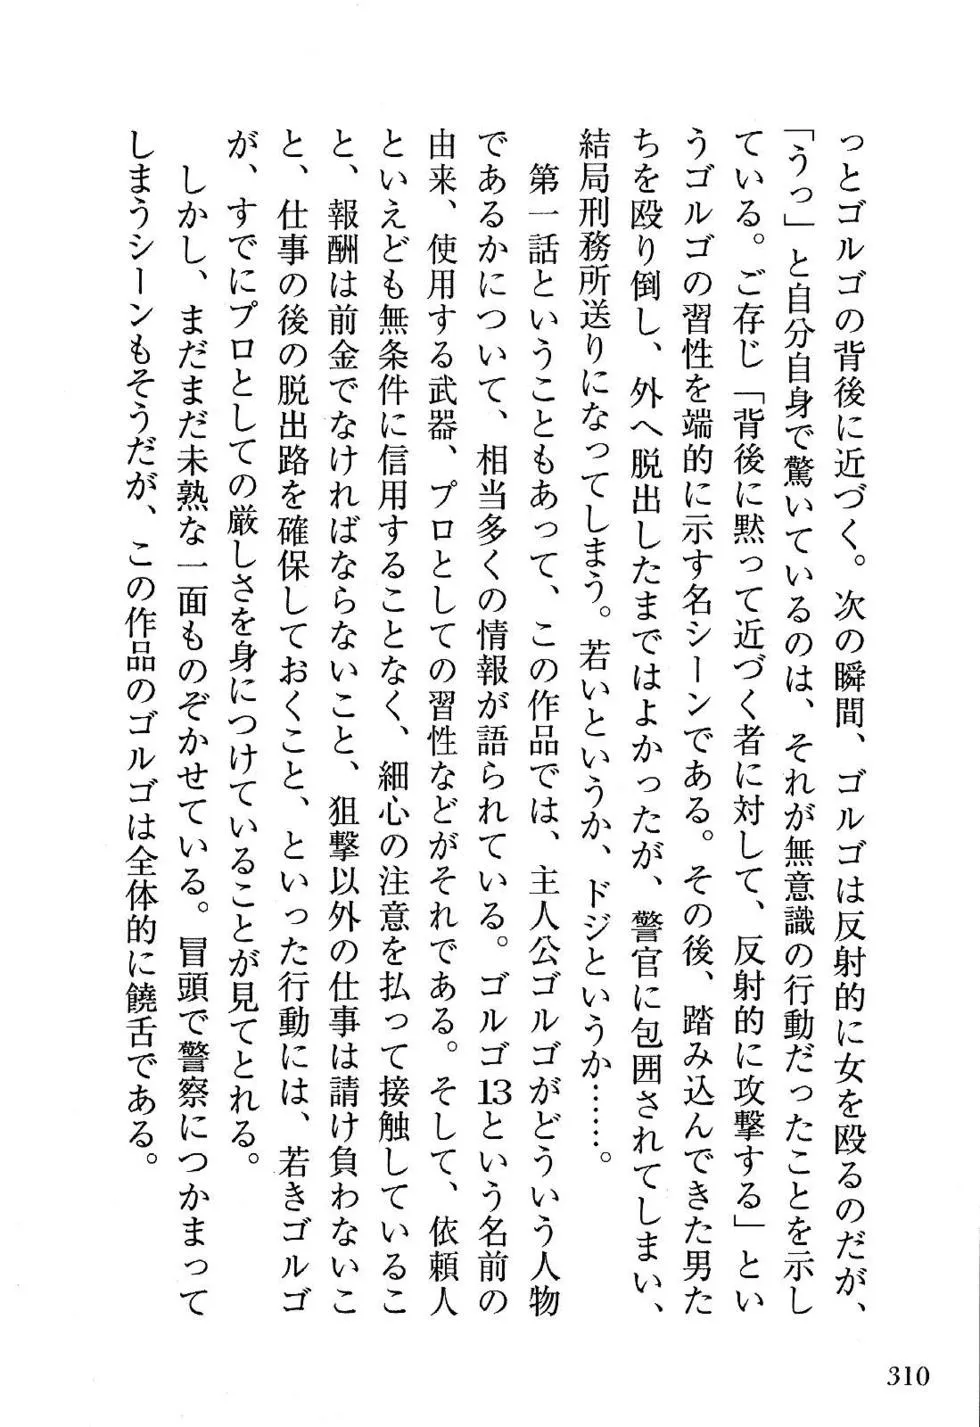 っとゴルゴの背後に近づく。次の瞬間、ゴルゴは反射的に女を殴るのだが、
「うっ」と自分自身で驚いているのは、それが無意識の行動だったことを示し
ている。ご存じ「背後に黙って近づく者に対して、反射的に攻撃する」とい
うゴルゴの習性を端的に示す名シーンである。その後、踏み込んできた男た
ちを殴り倒し、外へ脱出したまではよかったが、警官に包囲されてしまい、
結局刑務所送りになってしまう。若いというか、ドジというか……。
第一話ということもあって、この作品では、主人公ゴルゴがどういう人物
であるかについて、相当多くの情報が語られている。ゴルゴ13という名前の
由来、使用する武器、プロとしての習性などがそれである。そして、依頼人
といえども無条件に信用することなく、細心の注意を払って接触しているこ
と、報酬は前金でなければならないこと、狙撃以外の仕事は請け負わないこ
と、仕事の後の脱出路を確保しておくこと、といった行動には、若きゴルゴ
が、すでにプロとしての厳しさを身につけていることが見てとれる。
しかし、まだまだ未熟な一面ものぞかせている。冒頭で警察につかまって
しまうシーンもそうだが、この作品のゴルゴは全体的に饒舌である。
310